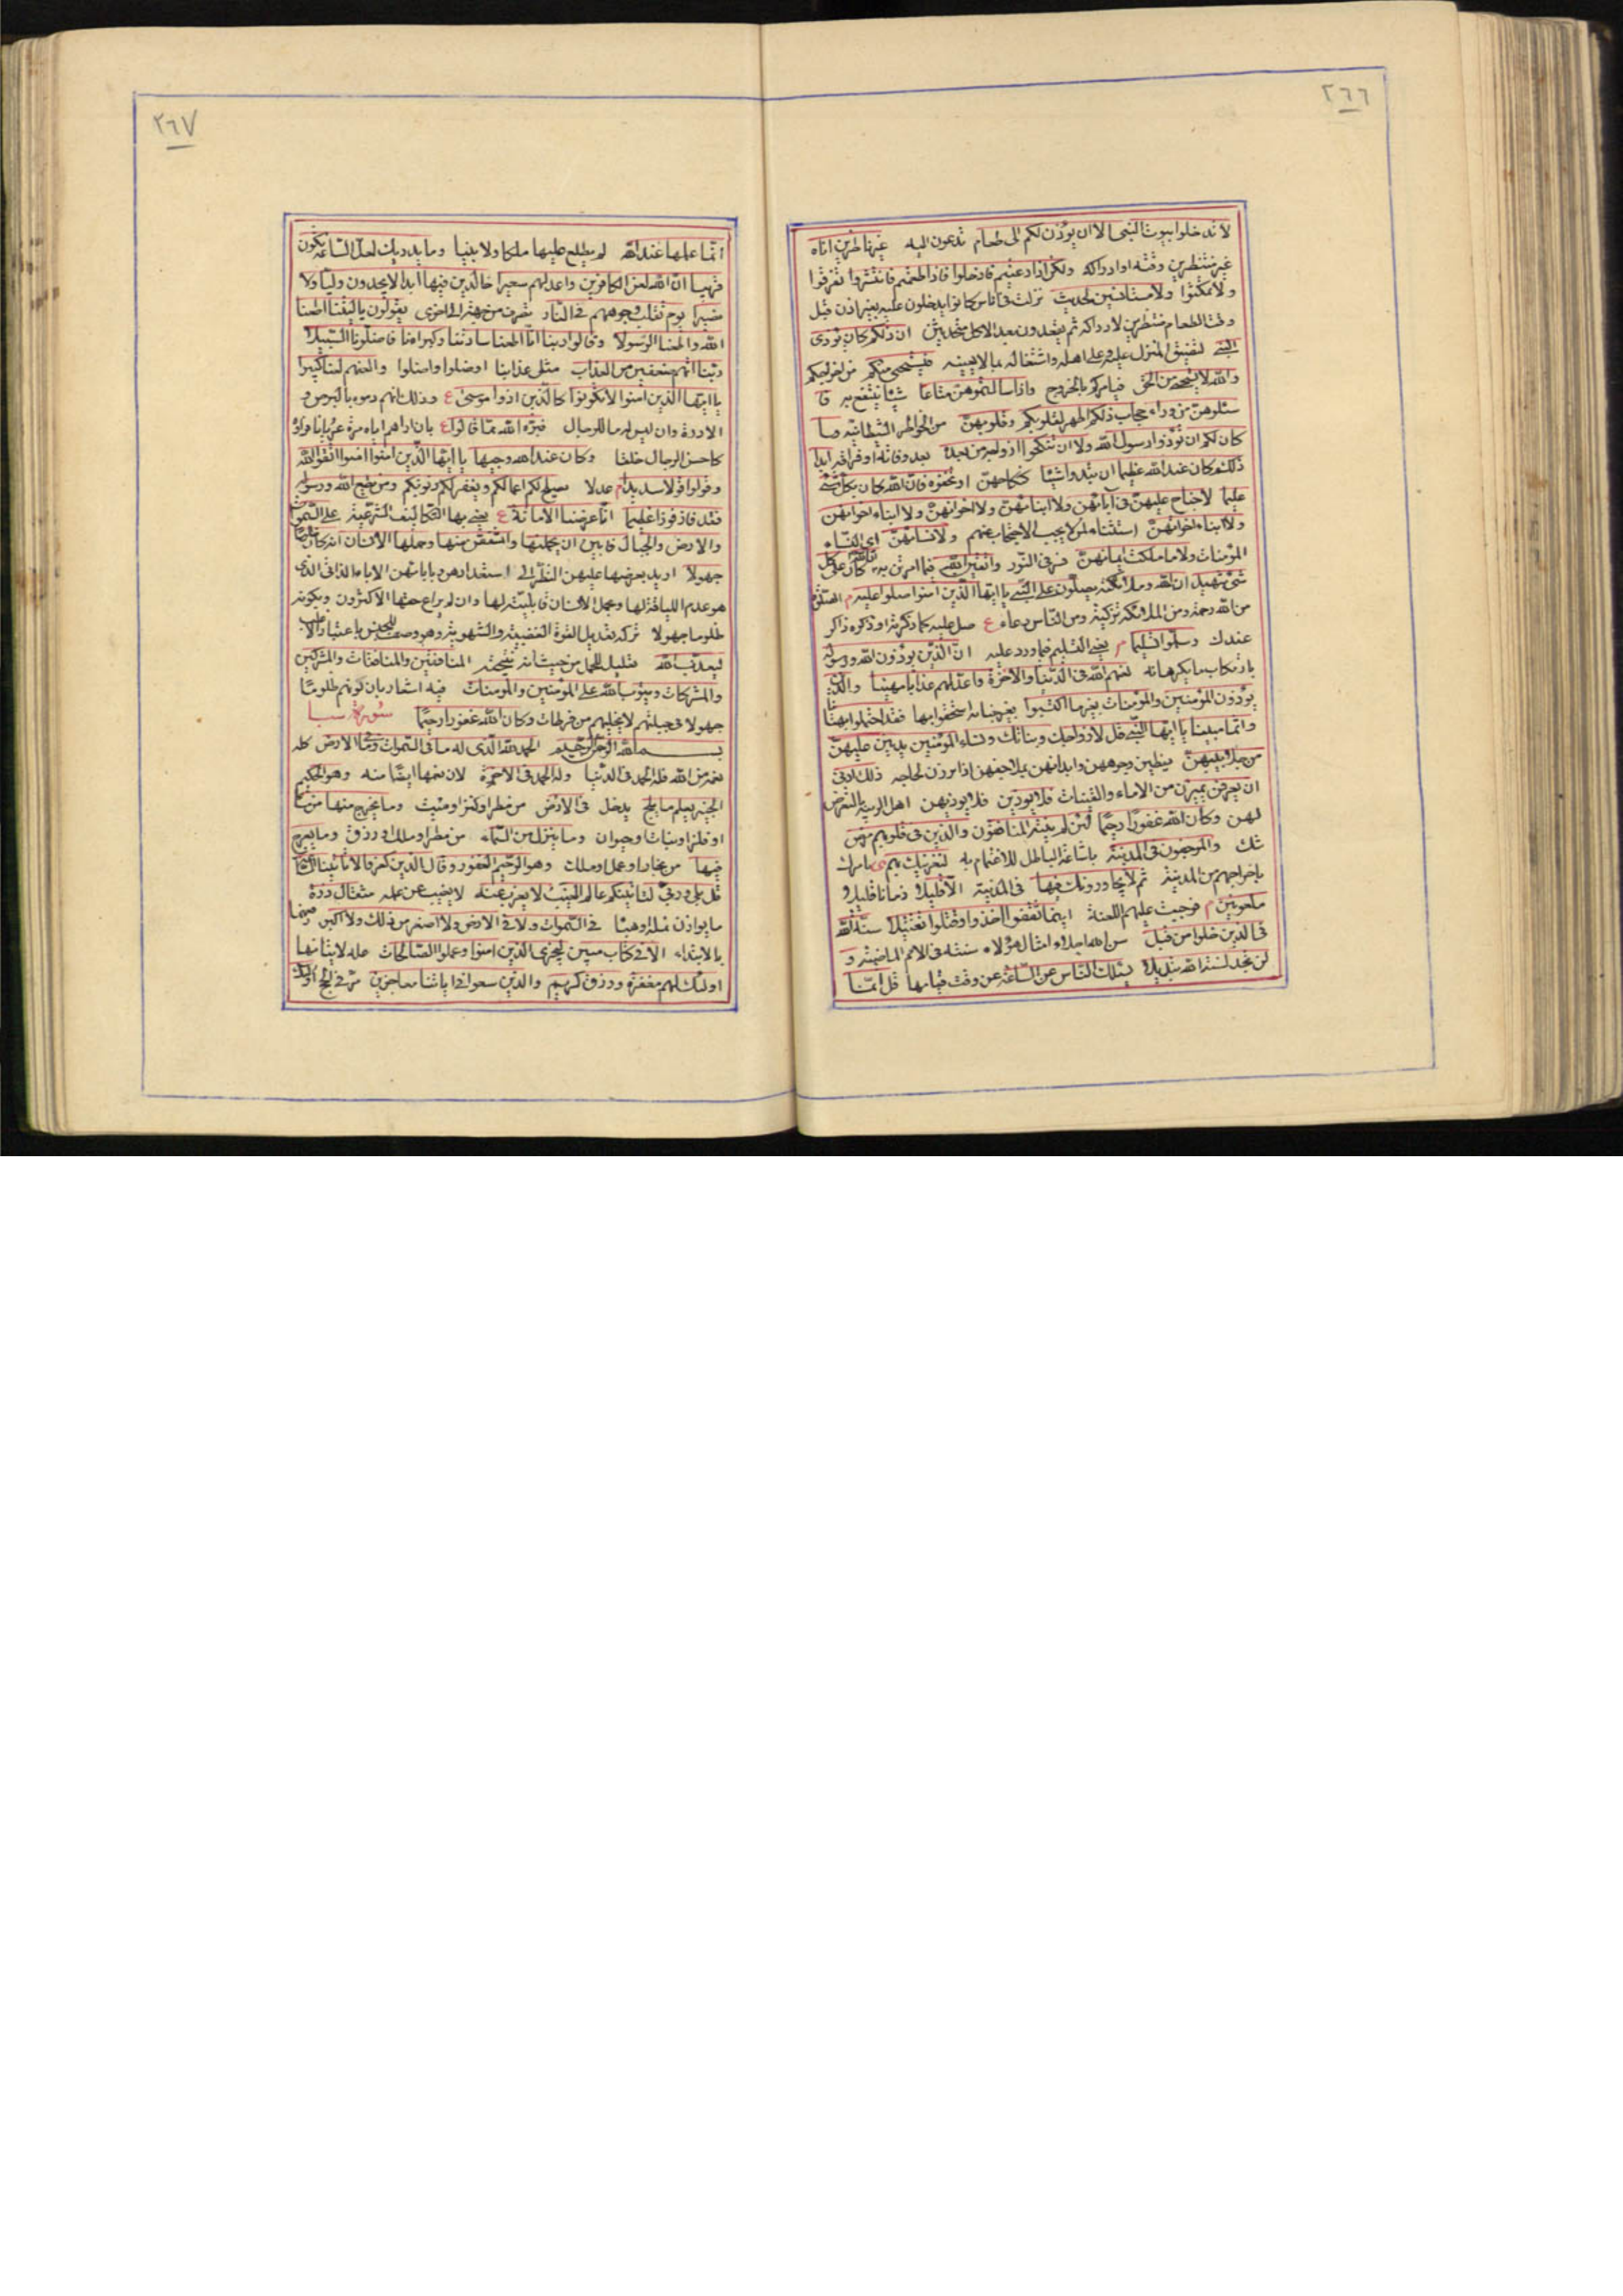 ٢٦٦
لا تدخلوا بيوت النبى الا ان يؤذن لكم الى طعام تدعون اليه غير ناظرين اناه
غير منتظرين وقته او ادراكه ولكن اذا دعيتم فادخلوا فاذا طعمتم فانتشروا تفرقوا
ولا تمكثوا ولا مستانسين لحديث نزلت فى اناس كانوا يدخلون عليه بغير اذن قبل
وقت الطعام منتظرين لادراكه ثم يقعدون بعد الاكل متحدثين ان ذلكم كان يؤذى
النبى لتضييق المنزل عليه وعلى اهله واشتغاله بما لا يعنيه فيستحيى منكم من اخراجكم
والله لا يستحيى من الحق فيامركم بالخروج واذا سالتموهن متاعا شيئا ينتفع به فا
سئلوهن من وراء حجاب ذلكم اطهر لقلوبكم وقلوبهن من الخواطر الشيطانيه وما
كان لكم ان تؤذوا رسول الله ولا ان تنكحوا ازواجه من بعده بعد وفاته او فراقه ابدا
ذلكم كان عند الله عظيما ان تبدوا شيئا كنكاحهن او تخفوه فان الله كان بكل شئ
عليما لا جناح عليهن فى آبائهن ولا ابنائهن ولا اخوانهن ولا ابناء اخوانهن
ولا ابناء اخواتهن استثناء لمن لا يجب الاحتجاب عنهم ولا نسائهن اى النساء
المؤمنات ولا ما ملكت ايمانهن مر فى النور واتقين الله فيما امرتن به ان الله كان على كل
شئ شهيدا ان الله وملائكته يصلون على النبى يا ايها الذين امنوا صلوا عليه م الصلوة
من الله رحمة ومن الملائكة تزكية ومن الناس دعاء ع صل عليه كلما ذكرته او ذكره ذاكر
عندك وسلموا تسليما م يعنى التسليم فيما ورد عليه ان الذين يؤذون الله ورسوله
بارتكاب ما يكرهانه لعنهم الله فى الدنيا والاخرة واعد لهم عذابا مهينا والذين
يؤذون المؤمنين والمؤمنات بغير ما اكتسبوا بغير جناية استحقوا بها فقد احتملوا بهتانا
واثما مبينا يا ايها النبى قل لازواجك وبناتك ونساء المؤمنين يدنين عليهن
من جلابيبهن يغطين وجوههن وابدانهن بملاحفهن اذا برزن لحاجة ذلك ادنى
ان يعرفن يميزن من الاماء والقينات فلا يؤذين فلا يؤذيهن اهل الريبة بالتعرض
لهن وكان الله غفورا رحيما لئن لم ينته المنافقون والذين فى قلوبهم مرض
شك والمرجفون فى المدينة باشاعة الباطل للاغتمام به لنغرينك بهم نامرك
باخراجهم من المدينة ثم لا يجاورونك فيها فى المدينة الا قليلا زمانا قليلا
ملعونين م فوجبت عليهم اللعنة اينما ثقفوا اخذوا وقتلوا تقتيلا سنة الله
فى الذين خلوا من قبل سن الله امثال هؤلاء سنته فى الامم الماضية و
لن تجد لسنة الله تبديلا يسئلك الناس عن الساعة عن وقت قيامها قل انما
٢٦٧
انما علمها عند الله لم يطلع عليها ملكا ولا نبيا وما يدريك لعل الساعة تكون
قريبا ان الله لعن الكافرين واعد لهم سعيرا خالدين فيها ابدا لا يجدون وليا ولا
نصيرا يوم تقلب وجوههم فى النار تصرف من جهة الى اخرى يقولون يا ليتنا اطعنا
الله واطعنا الرسولا وقالوا ربنا انا اطعنا سادتنا وكبراءنا فاضلونا السبيلا
ربنا اتهم ضعفين من العذاب مثلى عذابنا اذ ضلوا واضلوا والعنهم لعنا كبيرا
يا ايها الذين امنوا لا تكونوا كالذين اذوا موسى ع وذلك انهم رموه بالبرص و
الادرة وان ليس له ما للرجال فبرأه الله مما قالوا ع بان اراهم اياه مرة عريانا فراؤ
كاحسن الرجال خلقا وكان عند الله وجيها يا ايها الذين امنوا اتقوا الله
وقولوا قولا سديدا م عدلا يصلح لكم اعمالكم ويغفر لكم ذنوبكم ومن يطع الله ورسوله
فقد فاز فوزا عظيما انا عرضنا الامانة ع يعنى بها التكاليف الشرعية على السموات
والارض والجبال فابين ان يحملنها واشفقن منها وحملها الانسان انه كان ظلوما
جهولا اريد بعرضها عليهن النظر الى استعدادهن وبابائهن الاباء الذاتى الذى
هو عدم اللياقة لها وحمل الانسان قابليته لها وان لم يراع حقها الاكثرون وبكونه
ظلوما جهولا تركه تعديل القوة الغضبية والشهوية وهو وصف للجنس باعتبار الاغلب
ليعذب الله تعليل للحمل من حيث انه نتيجته المنافقين والمنافقات والمشركين
والمشركات ويتوب الله على المؤمنين والمؤمنات فيه اشعار بان كونهم ظلوما
جهولا فى جبلتهم لا يخليهم من فرطات وكان الله غفورا رحيما سورة سبا
بسم الله الرحمن الرحيم الحمد لله الذى له ما فى السموات وما فى الارض كله
نعمة من الله فله الحمد فى الدنيا وله الحمد فى الاخرة لان نعمها ايضا منه وهو الحكيم
الخبير يعلم ما يلج يدخل فى الارض من مطر او كنز او ميت وما يخرج منها من ماء
او فلز او نبات وحيوان وما ينزل من السماء من مطر او ملك او رزق وما يعرج
فيها من بخار او عمل او ملك وهو الرحيم الغفور وقال الذين كفروا لا تاتينا الساعة
قل بلى وربى لتاتينكم عالم الغيب لا يعزب عنه لا يغيب عن علمه مثقال ذرة
ما يوازن نملة او هباء فى السموات ولا فى الارض ولا اصغر من ذلك ولا اكبر رفعهما
بالابتداء الا فى كتاب مبين ليجزى الذين امنوا وعملوا الصالحات علة لاتيانها
اولئك لهم مغفرة ورزق كريم والذين سعوا فى اياتنا معاجزين مر فى الحج اولئك